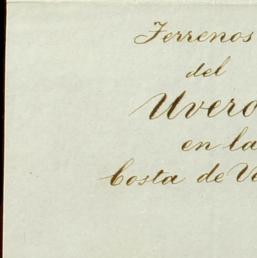 Terrenos
del
Uvero
en la
Costa de Ve